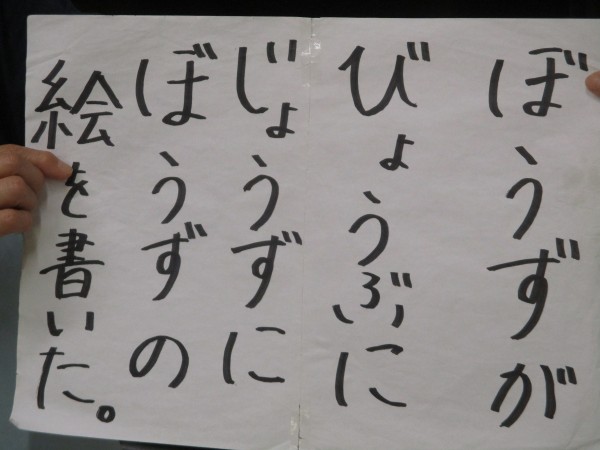 ぼうずが
びょうぶに
じょうずに
ぼうずの
絵を書いた。